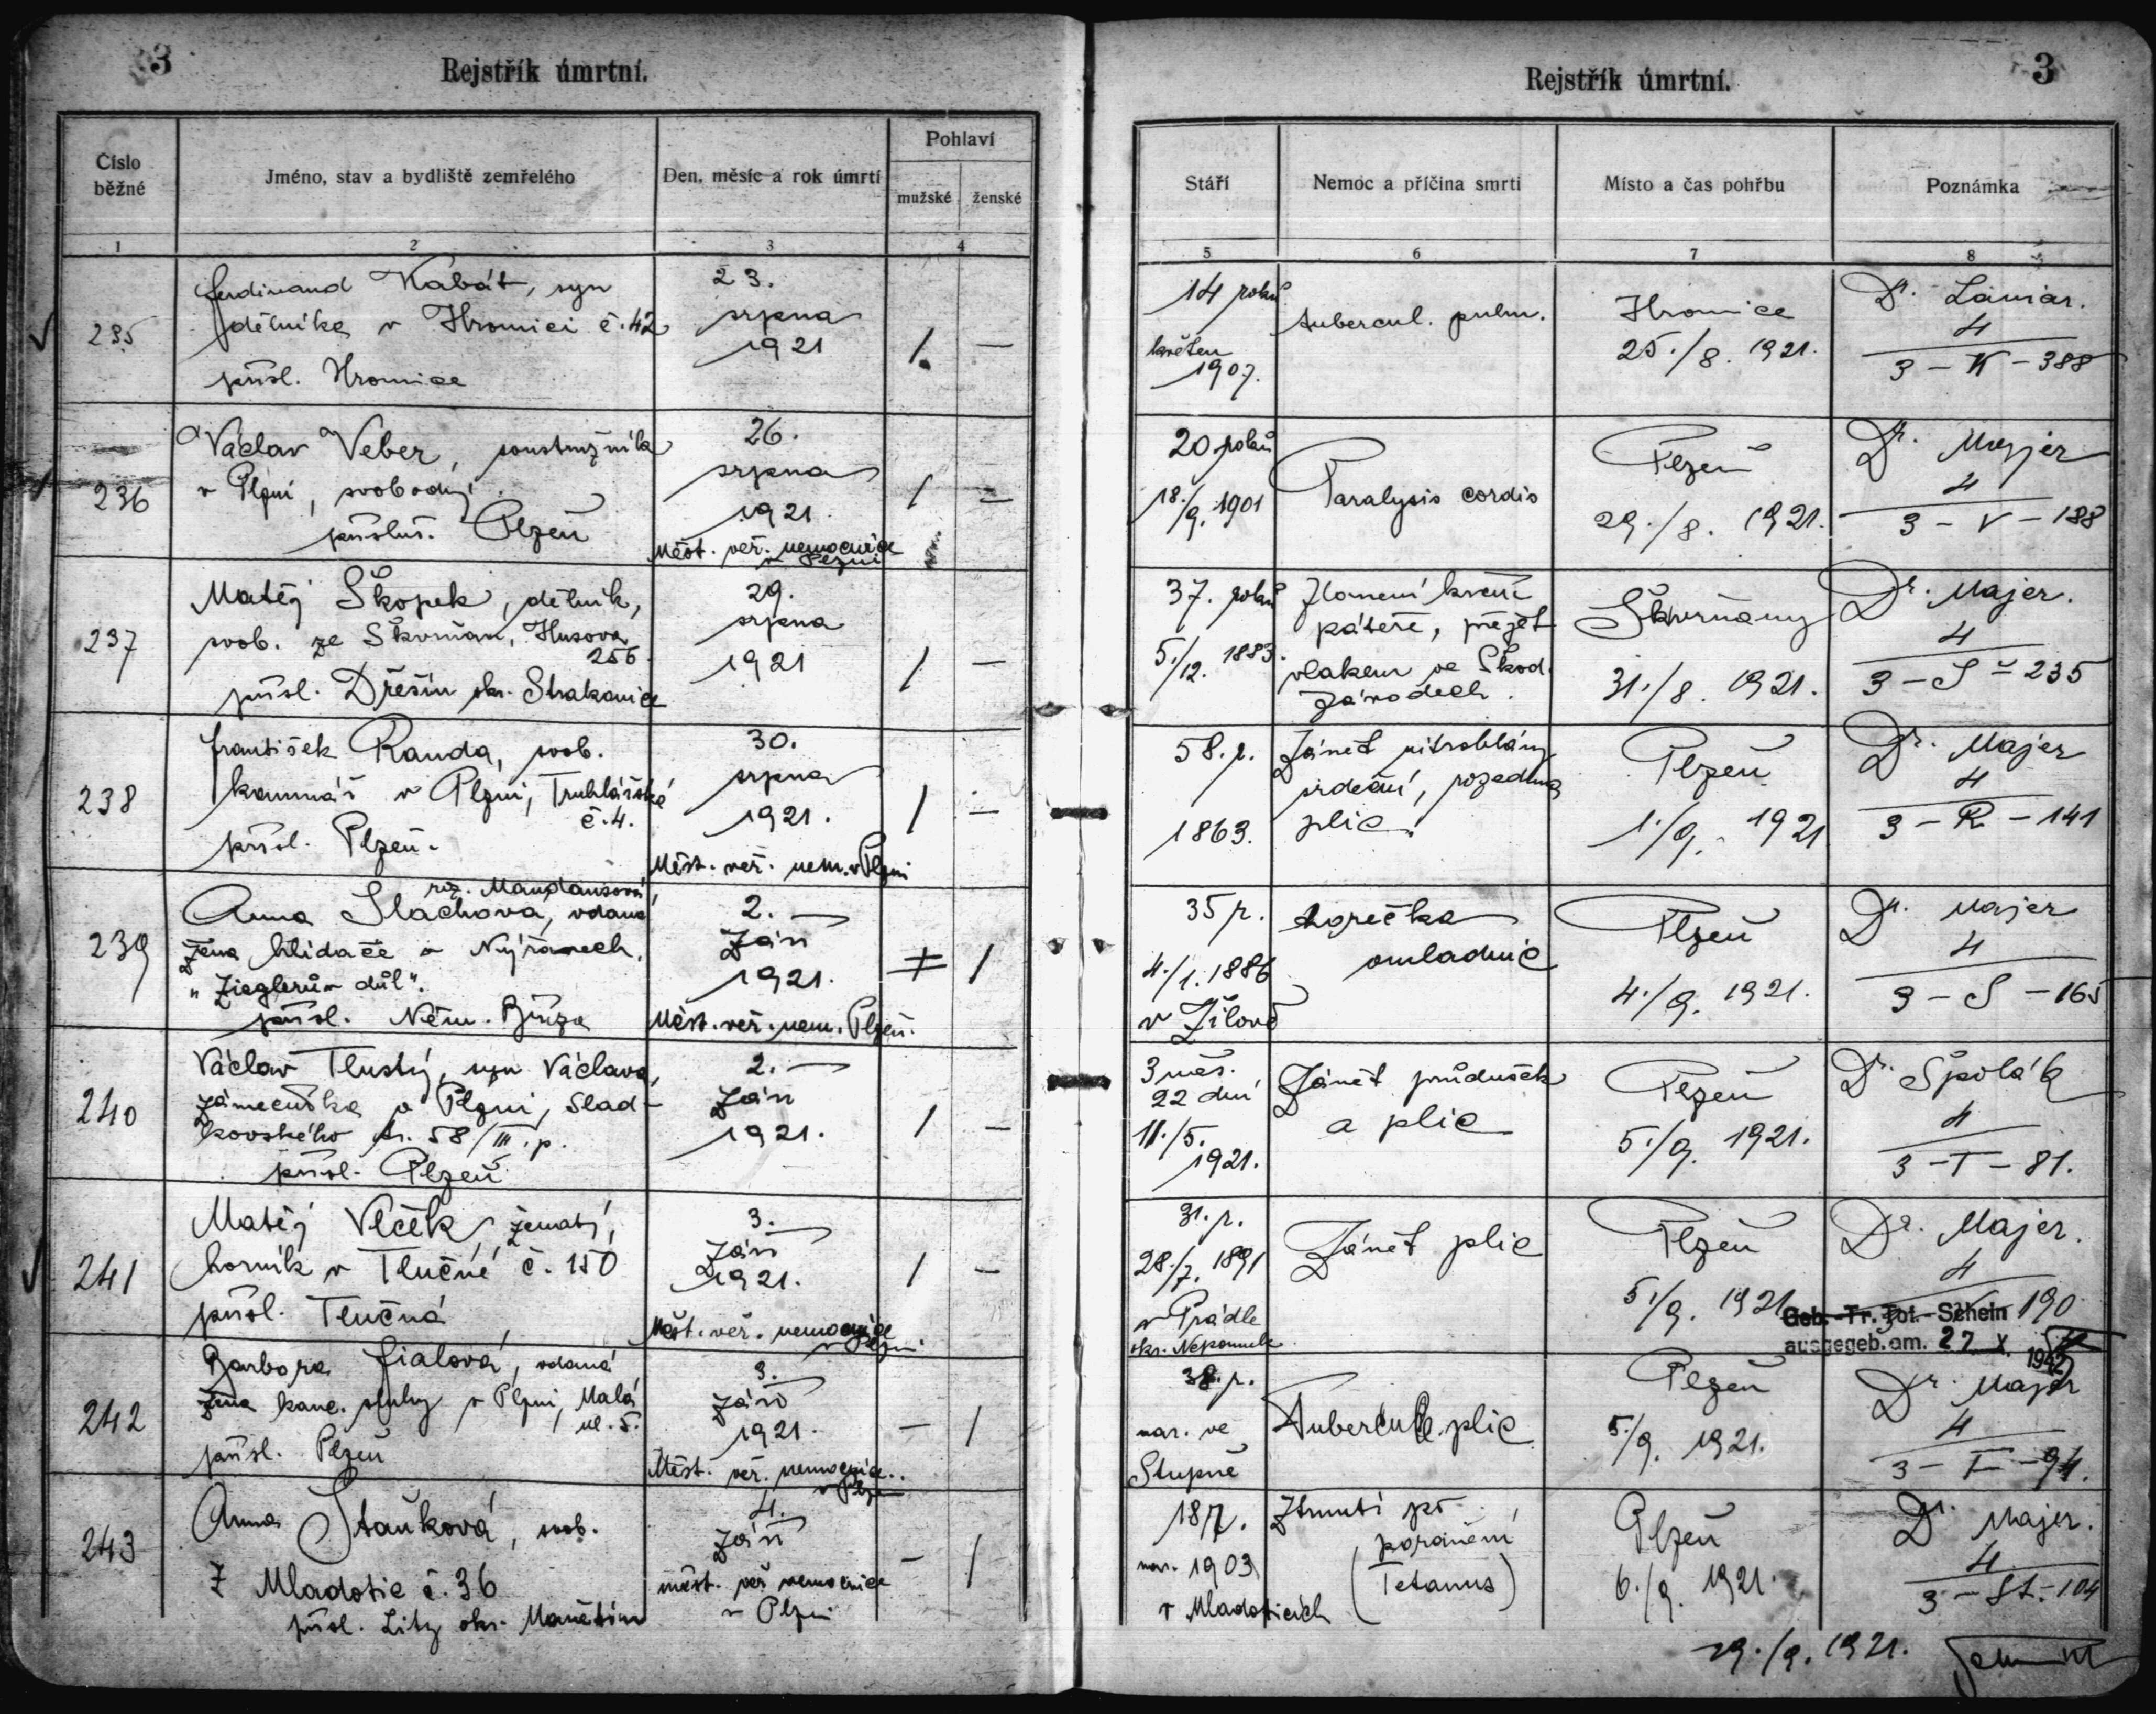 3
Rejstřík úmrtní.
Číslo
běžné
Jméno, stav a bydliště zemřelého
Den, měsíc a rok úmrtí
Pohlaví
mužské
ženské
1
2
3
4
235
Ferdinand Kabát, syn
dělníka v Hromici č. 42
přísl. Hromice
23.
srpna
1921
/.
—
236
Václav Veber, soustružník
v Plzni, svobodný
přísluš. Plzeň
26.
srpna
1921.
Měst. veř. nemocnice
v Plzni
/
—
237
Matěj Škopek, dělník,
svob. ze Škvrňan, Husova
256.
přísl. Dřešín okr. Strakonice
29.
srpna
1921
/
—
238
František Randa, svob.
v Plzni, Truhlářská
č. 4.
přísl. Plzeň.
30.
srpna
1921.
Měst. veř. nem. v Plzni
/
—
239
roz.
Anna Slachova, vdaná
žena hlídače v Nýřanech,
"Zieglerův důl".
přísl. Něm. Bříza
2. —
září
1921.
Měst. veř. nem. Plzeň.
/
240
Václav Tlustý, syn Václava,
zámečníka v Plzni, Slad-
kovského tř. 58/III. p.
přísl. Plzeň
2. —
září
1921.
/
—
241
Matěj Vlček, ženatý,
horník v Tlučné č. 150
přísl. Tlučná
3. —
září
1921.
Měst. veř. nemocnice
v Plzni
/
—
242
Barbora Fialová, vdaná
žena kanc. sluhy v Plzni, Malá
ul. 5.
přísl. Plzeň
3.
září
1921.
Měst. veř. nemocnice
v Plzni
—
/
243
Anna Staňková, svob.
z Mladotic č. 36
přísl. Litz okr. Manětín
4.
září
měst. veř. nemocnice
v Plzni
—
/
Rejstřík úmrtní.
3
Stáří
Nemoc a příčina smrti
Místo a čas pohřbu
Poznámka
5
6
7
8
14 roků
květen
1907.
tubercul. pulm.
Hromice
25./8. 1921.
Dr.
4
3 – K – 388
20 roků
18./9. 1901
Paralysis cordis
Plzeň
29./8. 1921.
Dr. Mayer
4
3 – V – 188
37. roků
5./12. 1883.
Zlomení krční
páteře, přejet
vlakem ve Škod.
závodech.
Škvrňany
31./8. 1921.
Dr. Majer.
4
3 – S – 235
58. r.
1863.
Zánět nitroblány
srdeční, rozedma
plic.
Plzeň
1./9. 1921
Dr. Majer
4
3 – R – 141
35 r.
4./1. 1886
v Žilově
horečka
omladnic
Plzeň
4./9. 1921.
Dr. Majer
4
3 – S – 165
3 měs.
22 dní
11./5.
1921.
Zánět průdušek
a plic
Plzeň
5./9. 1921.
Dr. Špolák
4
3 – T – 81.
31. r.
28./7. 1891
v Prádle
okr. Nepomuk
Zánět plic
Plzeň
5./9. 1921
Dr. Majer.
4
190
Geb.-Tr.-Tot.-Schein
ausgegeb. am. 27. X. 1942
38. r.
nar. ve
Stupně
Tubercul. plic
Plzeň
5./9. 1921.
Dr. Majer
4
3 – F – 94.
18 r.
nar. 1903
v Mladoticích
Ztrnutí po
poranění
(Tetanus)
Plzeň
6./9. 1921.
Dr. Majer.
4
3 – St. – 104
29./9. 1921.